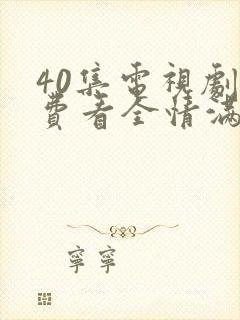 40集電視劇
費看全情滿
寧寧